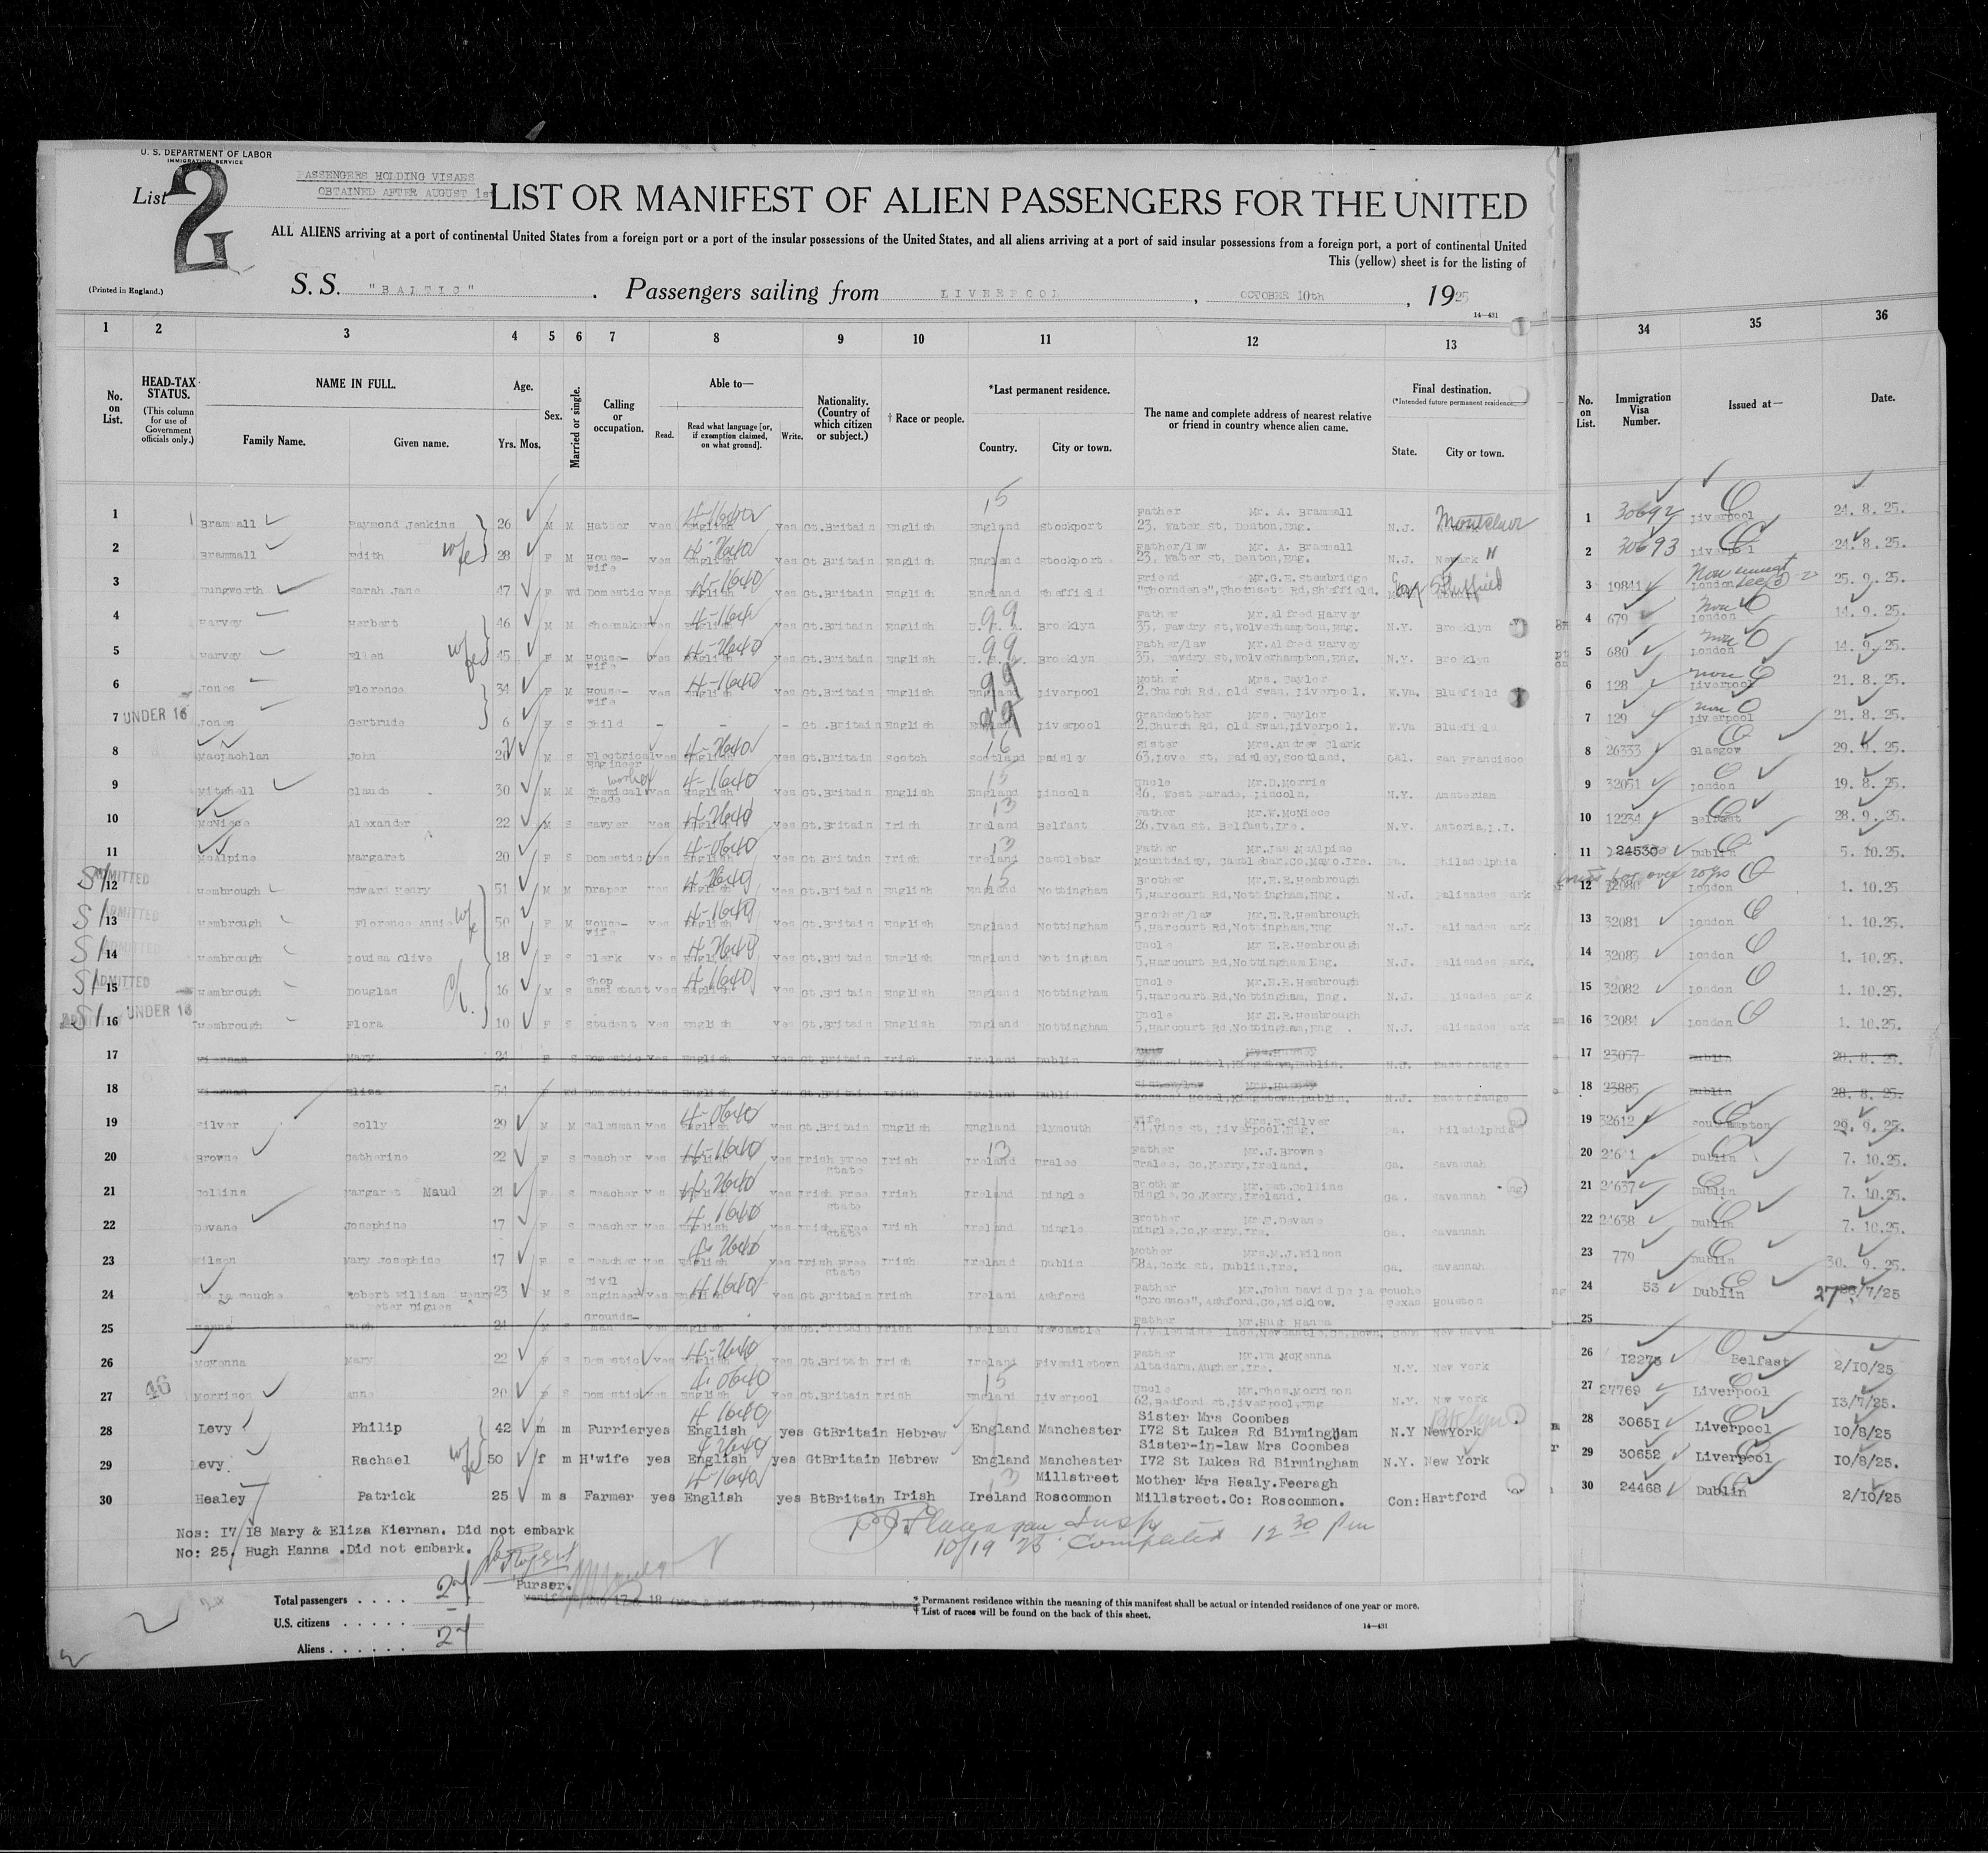 U. S. DEPARTMENT OF LABOR
IMMIGRATION SERVICE
List 2
PASSENGERS HOLDING VISAES
OBTAINED AFTER AUGUST 1st
LIST OR MANIFEST OF ALIEN PASSENGERS FOR THE UNITED
ALL ALIENS arriving at a port of continental United States from a foreign port or a port of the insular possessions of the United States, and all aliens arriving at a port of said insular possessions from a foreign port, a port of continental United
This (yellow) sheet is for the listing of
(Printed in England.)
S. S. "BALTIC" . Passengers sailing from LIVERPOOL , OCTOBER 10th , 1925
14—431
1 2 3 4 5 6 7 8 9 10 11 12 13 34 35 36
No. on List.
HEAD-TAX STATUS. (This column for use of Government officials only.)
NAME IN FULL.
Family Name. Given name.
Age. Yrs. Mos.
Sex.
Married or single.
Calling or occupation.
Able to—
Read. Read what language [or, if exemption claimed, on what ground]. Write.
Nationality. (Country of which citizen or subject.)
† Race or people.
*Last permanent residence.
Country. City or town.
The name and complete address of nearest relative or friend in country whence alien came.
Final destination.
(*Intended future permanent residence.)
State. City or town.
No. on List.
Immigration Visa Number.
Issued at—
Date.
1 Brammall Raymond Jenkins 26 M M Hatter yes English yes Gt.Britain English England Stockport Father Mr. A. Brammall 23, Water St, Denton, Eng. N.J. Montclair 1 30692 Liverpool 24. 8. 25.
2 Brammall Edith wife 28 F M House-wife yes English yes Gt.Britain English England Stockport Father/law Mr. A. Brammall 23, Water St, Denton, Eng. N.J. Newark " 2 30693 Liverpool 24. 8. 25.
3 Dungworth Sarah Jane 47 F Wd Domestic yes English yes Gt.Britain English England Sheffield Friend Mr.G.E. Stembridge "Thorndene", Thornsett Rd, Sheffield. Eng Sheffield 3 19841 London 25. 9. 25.
4 Harvey Herbert 46 M M Shoemaker yes English yes Gt.Britain English U.S.A. Brooklyn Father Mr.Alfred Harvey 35, Fawdry St, Wolverhampton, Eng. N.Y. Brooklyn 4 679 London 14. 9. 25.
5 Harvey Ellen wife 45 F M House-wife yes English yes Gt.Britain English U.S.A. Brooklyn Father/law Mr.Alfred Harvey 35, Fawdry St, Wolverhampton, Eng. N.Y. Brooklyn 5 680 London 14. 9. 25.
6 Jones Florence 34 F M House-wife yes English yes Gt.Britain English England Liverpool Mother Mrs. Taylor 2, Church Rd, Old Swan, Liverpool. W.Va. Bluefield 6 128 Liverpool 21. 8. 25.
7 UNDER 16 Jones Gertrude 6 F S Child - - - Gt.Britain English England Liverpool Grandmother Mrs. Taylor 2, Church Rd, Old Swan, Liverpool. W.Va Bluefield 7 129 Liverpool 21. 8. 25.
8 MacLachlan John 26 M S Electrical Engineer yes English yes Gt.Britain Scotch Scotland Paisley Sister Mrs.Andrew Clark 63, Love St, Paisley, Scotland. Cal. San Francisco 8 26333 Glasgow 29. 9. 25.
9 Mitchell Claude 30 M M Chemical worker yes English yes Gt.Britain English England Lincoln Uncle Mr.D.Morris 46, West Parade, Lincoln, N.Y. Amsterdam 9 32051 London 19. 8. 25.
10 McNiece Alexander 22 M S Sawyer yes English yes Gt.Britain Irish Ireland Belfast Father Mr.W.McNiece 26, Ivan St, Belfast, Ire. N.Y. Astoria, L.I. 10 12234 Belfast 28. 9. 25.
11 McAlpine Margaret 20 F S Domestic yes English yes Gt.Britain Irish Ireland Castlebar Father Mr.Jas McAlpine Mountdaisy, Castlebar, Co, Mayo. Ire. Pa. Philadelphia 11 24530 Dublin 5. 10.25.
S/ ADMITTED 12 Hembrough Edward Henry 51 M M Draper yes English yes Gt.Britain English England Nottingham Brother Mr.E.R.Hembrough 5, Harcourt Rd, Nottingham, Eng. N.J. Palisades Park 12 32080 London 1. 10.25
S/ ADMITTED 13 Hembrough Florence Annie wife 50 F M House-wife yes English yes Gt.Britain English England Nottingham Brother/law Mr.E.R.Hembrough 5, Harcourt Rd, Nottingham, Eng N.J. Palisades Park 13 32081 London 1. 10.25.
S/ ADMITTED 14 Hembrough Louisa Olive 18 F S Clerk yes English yes Gt.Britain English England Nottingham Uncle Mr E.R.Hembrough 5, Harcourt Rd, Nottingham Eng. N.J. Palisades Park. 14 32083 London 1. 10.25.
S/ ADMITTED 15 Hembrough Douglas 16 M S Shop assistant yes English yes Gt.Britain English England Nottingham Uncle Mr.E.R.Hembrough 5, Harcourt Rd, Nottingham, Eng. N.J. Palisades Park 15 32082 London 1. 10.25.
S/ UNDER 16 16 Hembrough Flora 10 F S Student yes English yes Gt.Britain English England Nottingham Uncle Mr E.R.Hembrough 5, Harcourt Rd, Nottingham, Eng . N.J. Palisades Park 16 32084 London 1. 10.25.
17 Kiernan Mary 24 F S Domestic Yes English Yes Gt.Britain Irish Ireland Dublin Hotel, Kingstown, Dublin. N.J. East Orange 17 23057 Dublin 28. 8. 25.
18 Kiernan Eliza 54 F Wd Domestic Yes English Yes Gt.Britain Irish Ireland Dublin Hotel, Kingstown, Dublin. N.J. East Orange 18 23885 Dublin 28. 8. 25.
19 Silver Solly 29 M M Salesman yes English yes Gt.Britain English England Plymouth Wife Mrs.E.Silver 31, Vine St, Liverpool, Eng. Pa. Philadelphia 19 32612 Southampton 29. 9. 25.
20 Browne Catherine 22 F S Teacher yes English yes Irish Free State Irish Ireland Tralee Father Mr.J.Browne Tralee, Co, Kerry, Ireland. Ga. Savannah 20 Dublin 7. 10.25.
21 Collins Margaret Maud 21 F S Teacher yes English yes Irish Free State Irish Ireland Dingle Brother Mr.Pat.Collins Dingle, Co, Kerry, Ireland. Ga. Savannah 21 24637 Dublin 7. 10.25.
22 Devane Josephine 17 F S Teacher yes English yes Irish Free State Irish Ireland Dingle Brother Mr.P.Devane Dingle, Co, Kerry, Ire. Ga. Savannah 22 24638 Dublin 7. 10.25.
23 Wilson Mary Josephine 17 F S Teacher yes English yes Irish Free State Irish Ireland Dublin Mother Mrs.M.J.Wilson 58A, Cork St, Dublin, Ire. Ga. Savannah 23 779 Dublin 30. 9. 25.
24 De La Touche Robert William Henry Peter Digues 23 M S Civil engineer yes English yes Gt.Britain Irish Ireland Ashford Father Mr.John David De La Touche Ashford, Co, Wicklow. Texas Houston 24 53 Dublin 27/7/25
25 Hanna Hugh 24 M S Grounds-man yes English yes Gt.Britain Irish Ireland Newcastle Father Mr.Hugh Hanna 7, Valentine Place, Newcastle, Co, Down. Conn New Haven 25
26 McKenna Mary 22 F S Domestic yes English yes Gt.Britain Irish Ireland Fivemiletown Father Mr.Wm McKenna Altadarn, Augher, Ire. N.Y. New York 26 12275 Belfast 2/10/25
46 27 Morrison Anne 20 F S Domestic yes English yes Gt.Britain Irish England Liverpool Uncle Mr.Thos.Morrison 62, Bedford St, Liverpool, Eng N.Y. New York 27 27769 Liverpool 13/7/25.
28 Levy Philip 42 m m Furrier yes English yes GtBritain Hebrew England Manchester Sister Mrs Coombes I72 St Lukes Rd Birmingham N.Y NewYork Brooklyn 28 3065I Liverpool I0/8/25
29 Levy Rachael wife 50 f m H'wife yes English yes GtBritain Hebrew England Manchester Sister-in-law Mrs Coombes I72 St Lukes Rd Birmingham N.Y. New York 29 30652 Liverpool I0/8/25.
30 Healey Patrick 25 m s Farmer yes English yes BtBritain Irish Ireland Millstreet Roscommon Mother Mrs Healy.Feeragh Millstreet.Co: Roscommon. Con: Hartford 30 24468 Dublin 2/I0/25
Nos: I7/I8 Mary & Eliza Kiernan. Did not embark
No: 25. Hugh Hanna .Did not embark.
10/19 25 Completed 12 30 pm
Purser.
Total passengers . . . . 27
U.S. citizens . . . . . —
Aliens . . . . . . 27
* Permanent residence within the meaning of this manifest shall be actual or intended residence of one year or more.
† List of races will be found on the back of this sheet.
14—431